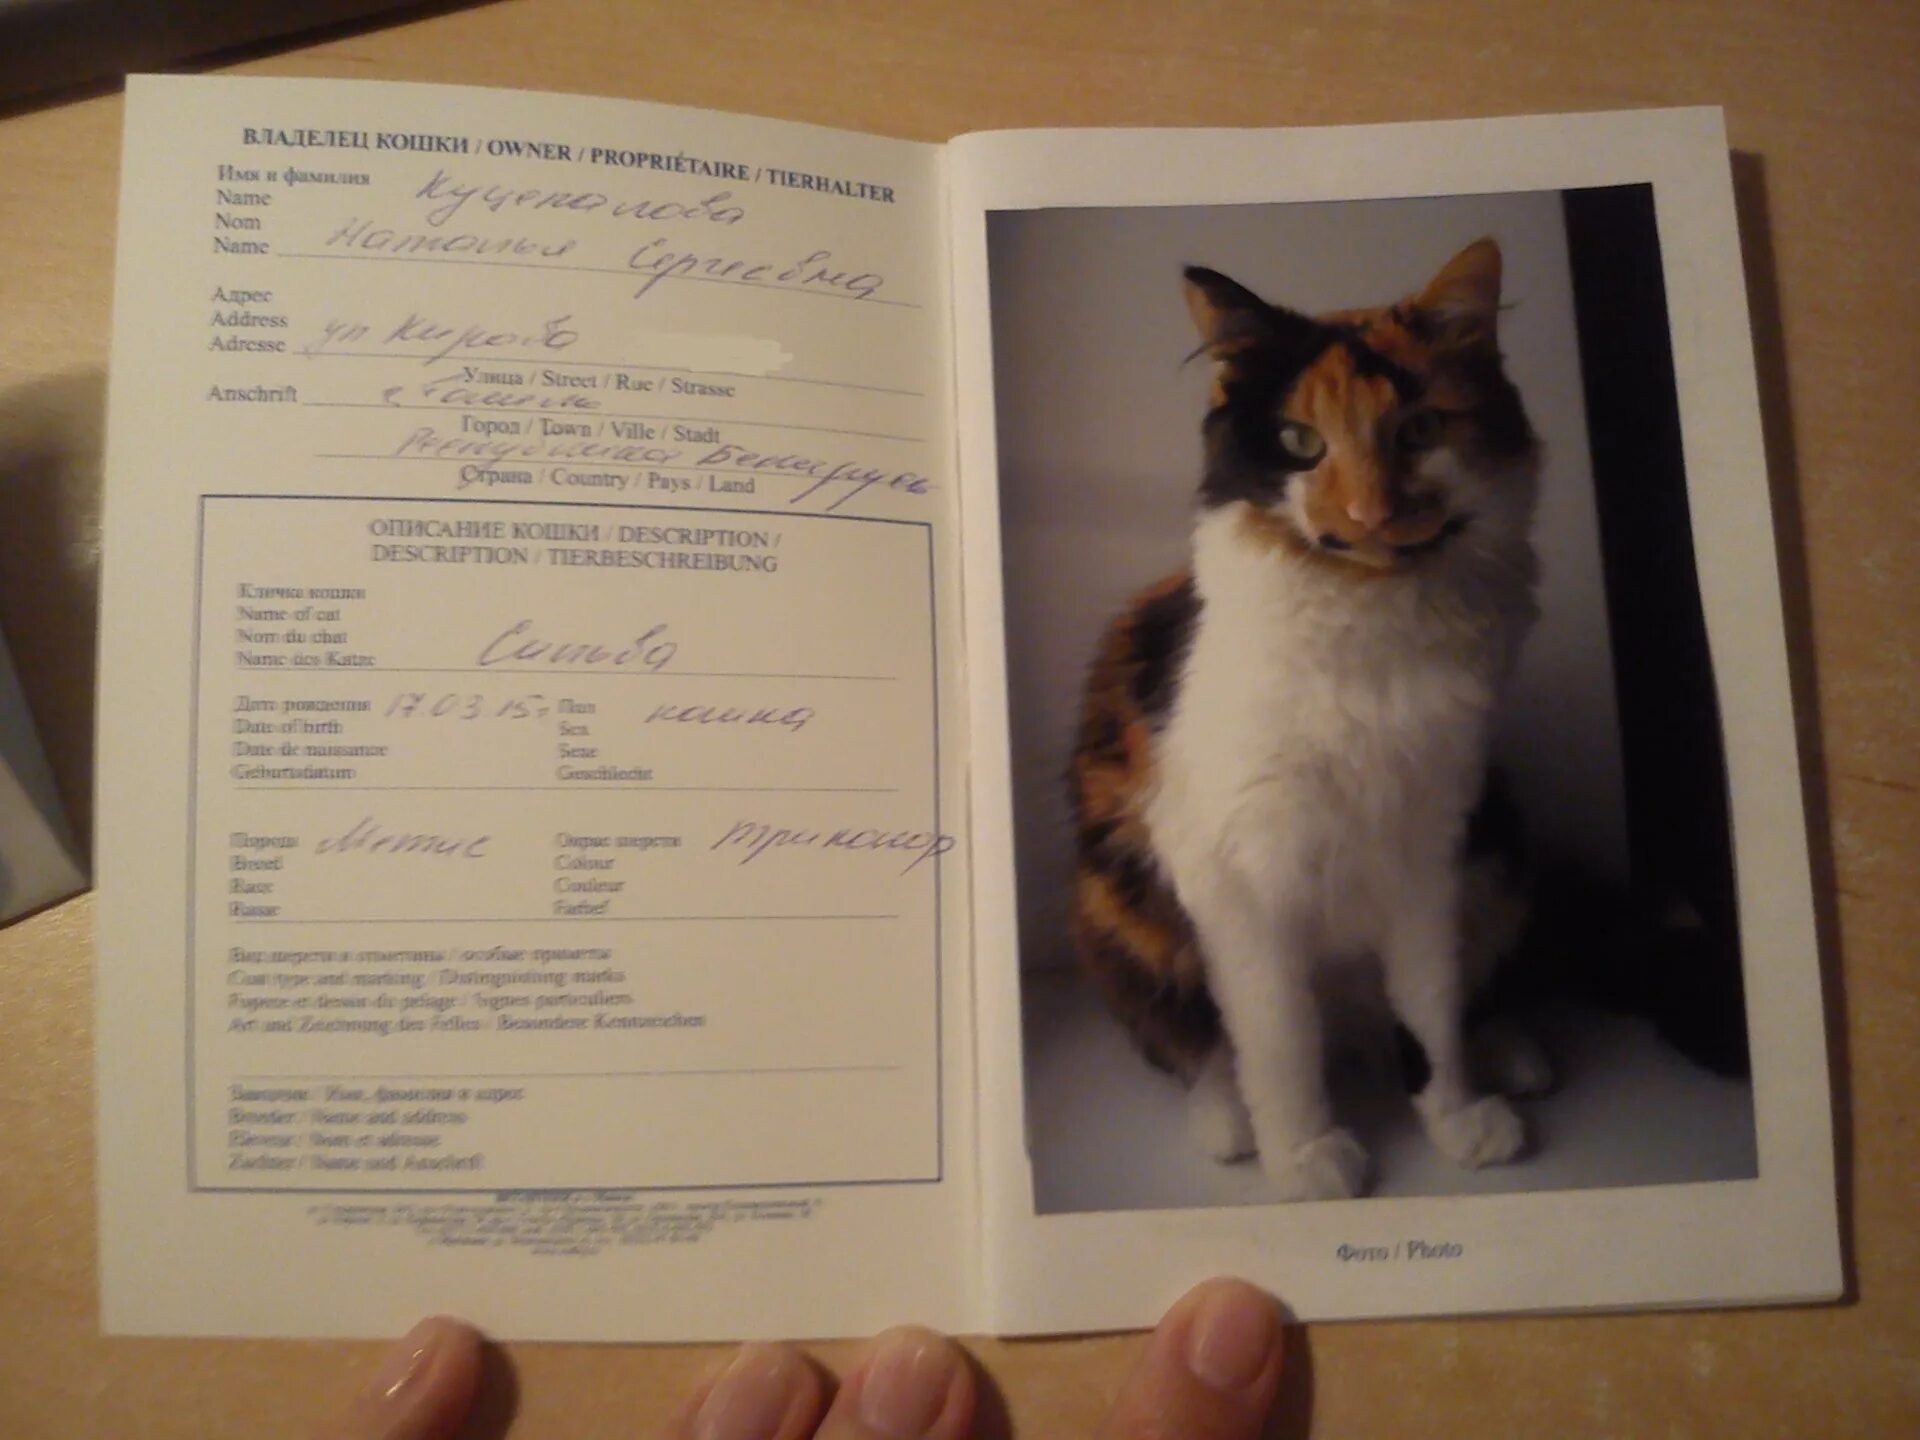 ВЛАДЕЛЕЦ КОШКИ / OWNER / PROPRIÉTAIRE / TIERHALTER
Имя и фамилия
Name
Nom
Name
Наталья Сергеевна
Адрес
Address
Adresse ул Кирова
Улица / Street / Rue / Strasse
Anschrift г. Гомель
Город / Town / Ville / Stadt
Республика Беларусь
Страна / Country / Pays / Land
ОПИСАНИЕ КОШКИ / DESCRIPTION /
DESCRIPTION / TIERBESCHREIBUNG
Кличка кошки
Name of cat
Nom du chat
Name des Katze Сильва
Дата рождения 17.03.15г Пол кошка
Date of birth Sex
Date de naissance Sexe
Geburtsdatum Geschlecht
Порода Метис Окрас шерсти триколор
Breed Colour
Race Couleur
Rasse Farbe
Вид шерсти и отметины / особые приметы
Coat type and marking / Distinguishing marks
Signes particuliers
Art und Zeichnung des Felles / Besondere Kennzeichen
Имя, фамилия и адрес
Breeder / Name and address
Eleveur / Nom et adresse
Zuchter / Name und Anschrift
Фото / Photo